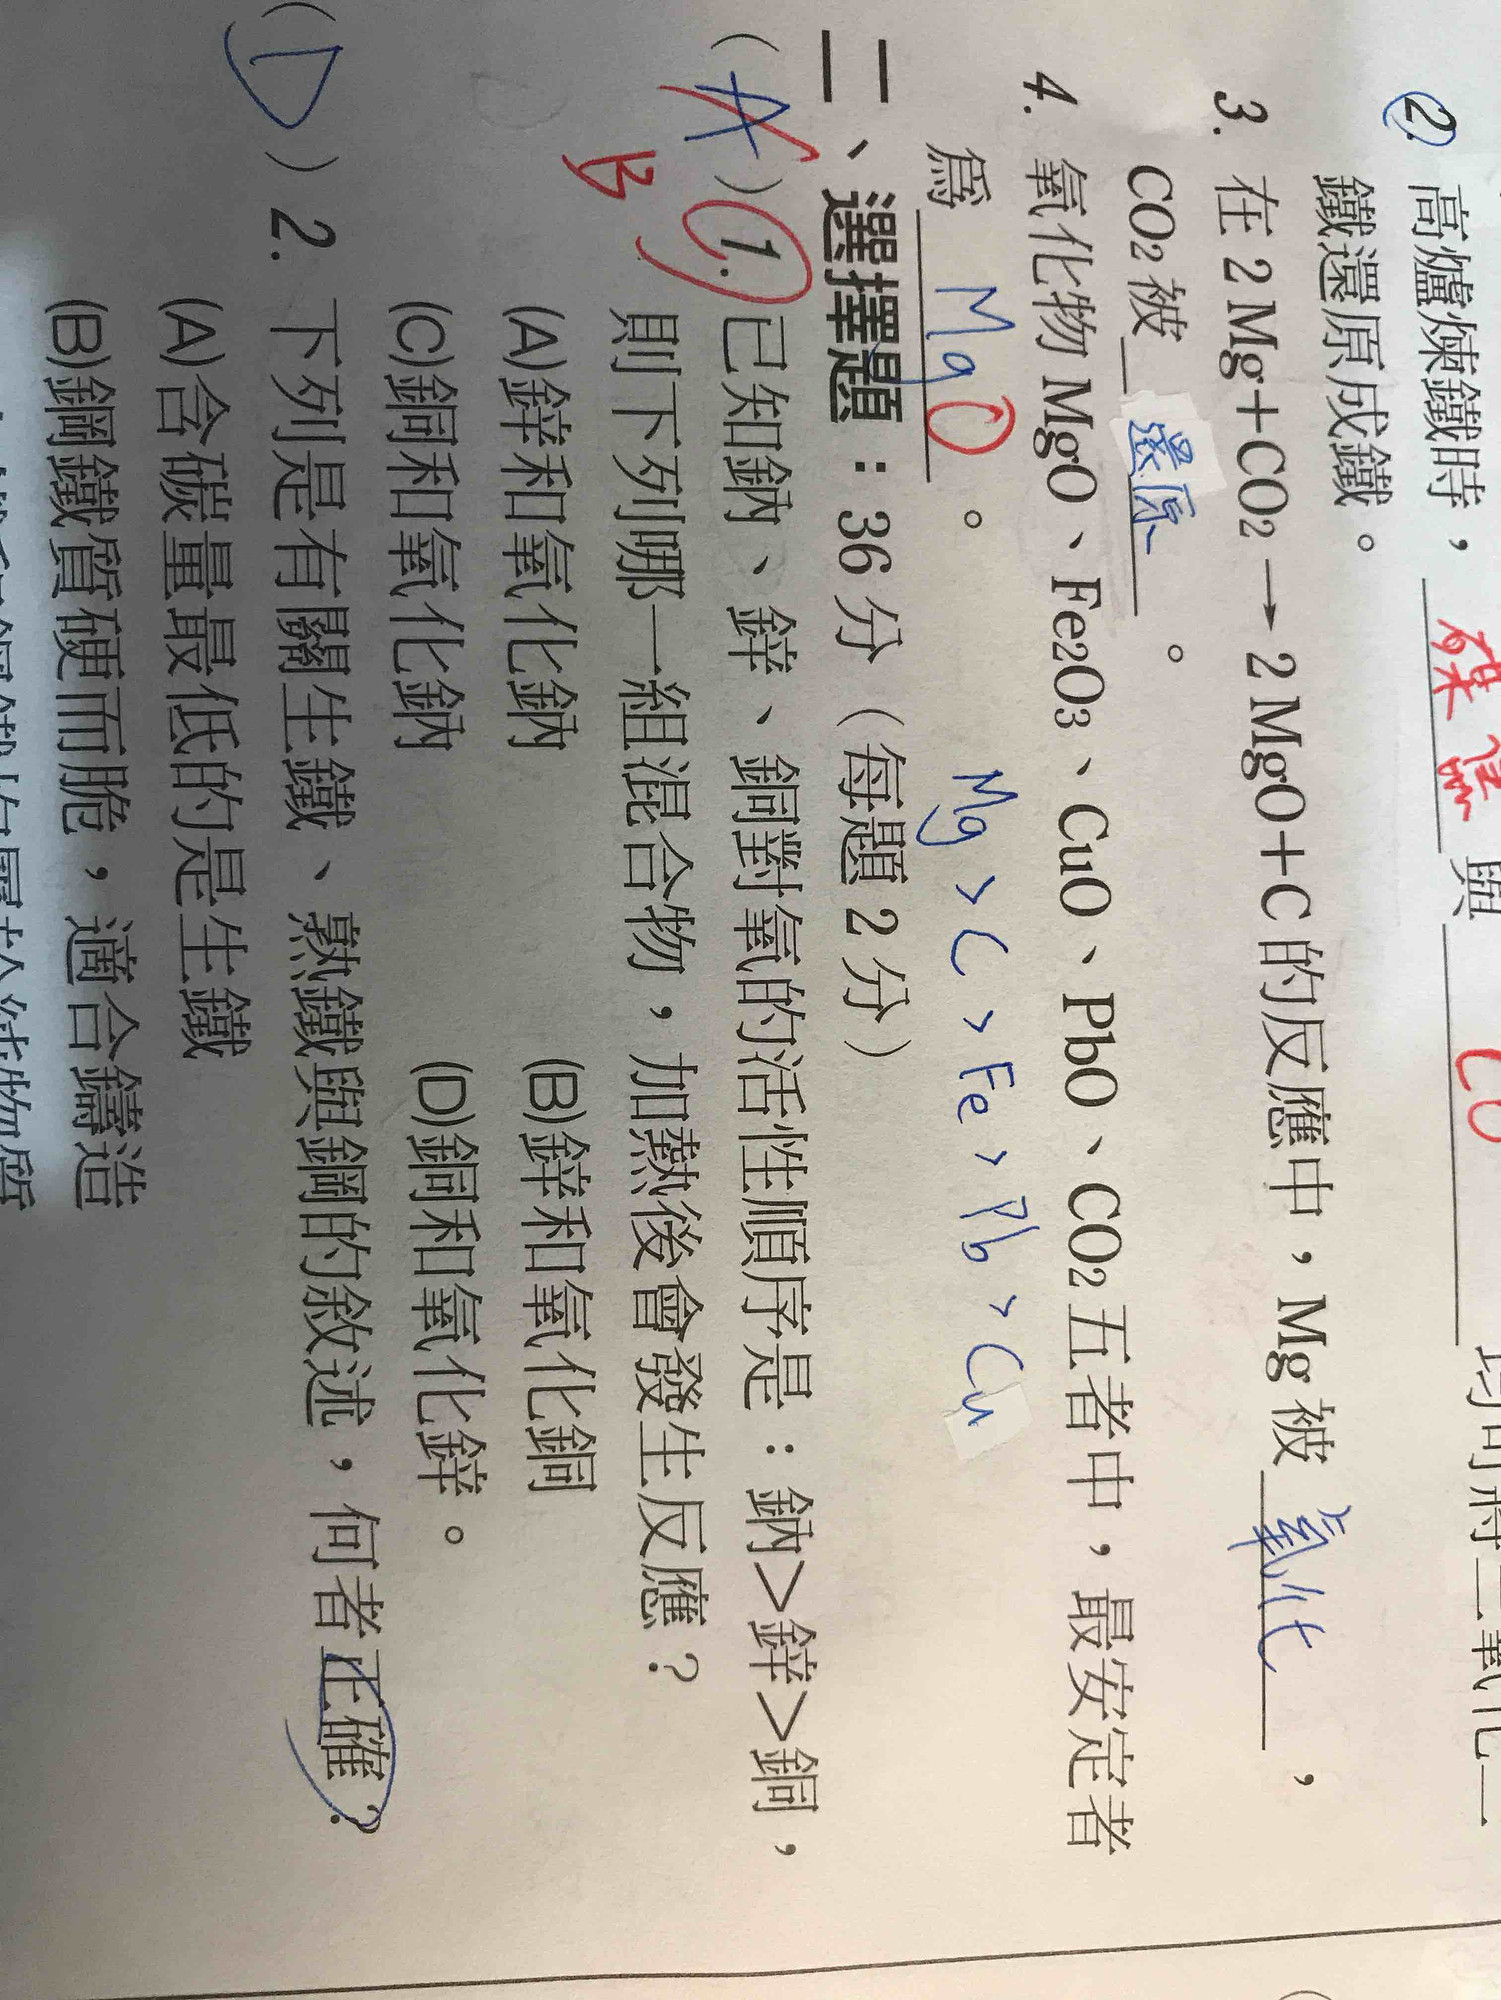 2. 高爐煉鐵時，煤焦與 CO
鐵還原成鐵。
3. 在 2 Mg+CO2→2 MgO+C 的反應中，Mg 被 氧化，
CO2 被 還原。
4. 氧化物 MgO、Fe2O3、CuO、PbO、CO2 五者中，最安定者
為 MgO。 Mg > C > Fe > Pb > Cu
二、選擇題：36 分（每題 2 分）
(A) B 1. 已知鈉、鋅、銅對氧的活性順序是：鈉>鋅>銅，
則下列哪一組混合物，加熱後會發生反應？
(A)鋅和氧化鈉 (B)鋅和氧化銅
(C)銅和氧化鈉 (D)銅和氧化鋅。
(D) 2. 下列是有關生鐵、熟鐵與鋼的敘述，何者正確？
(A)含碳量最低的是生鐵
(B)鋼鐵質硬而脆，適合鑄造